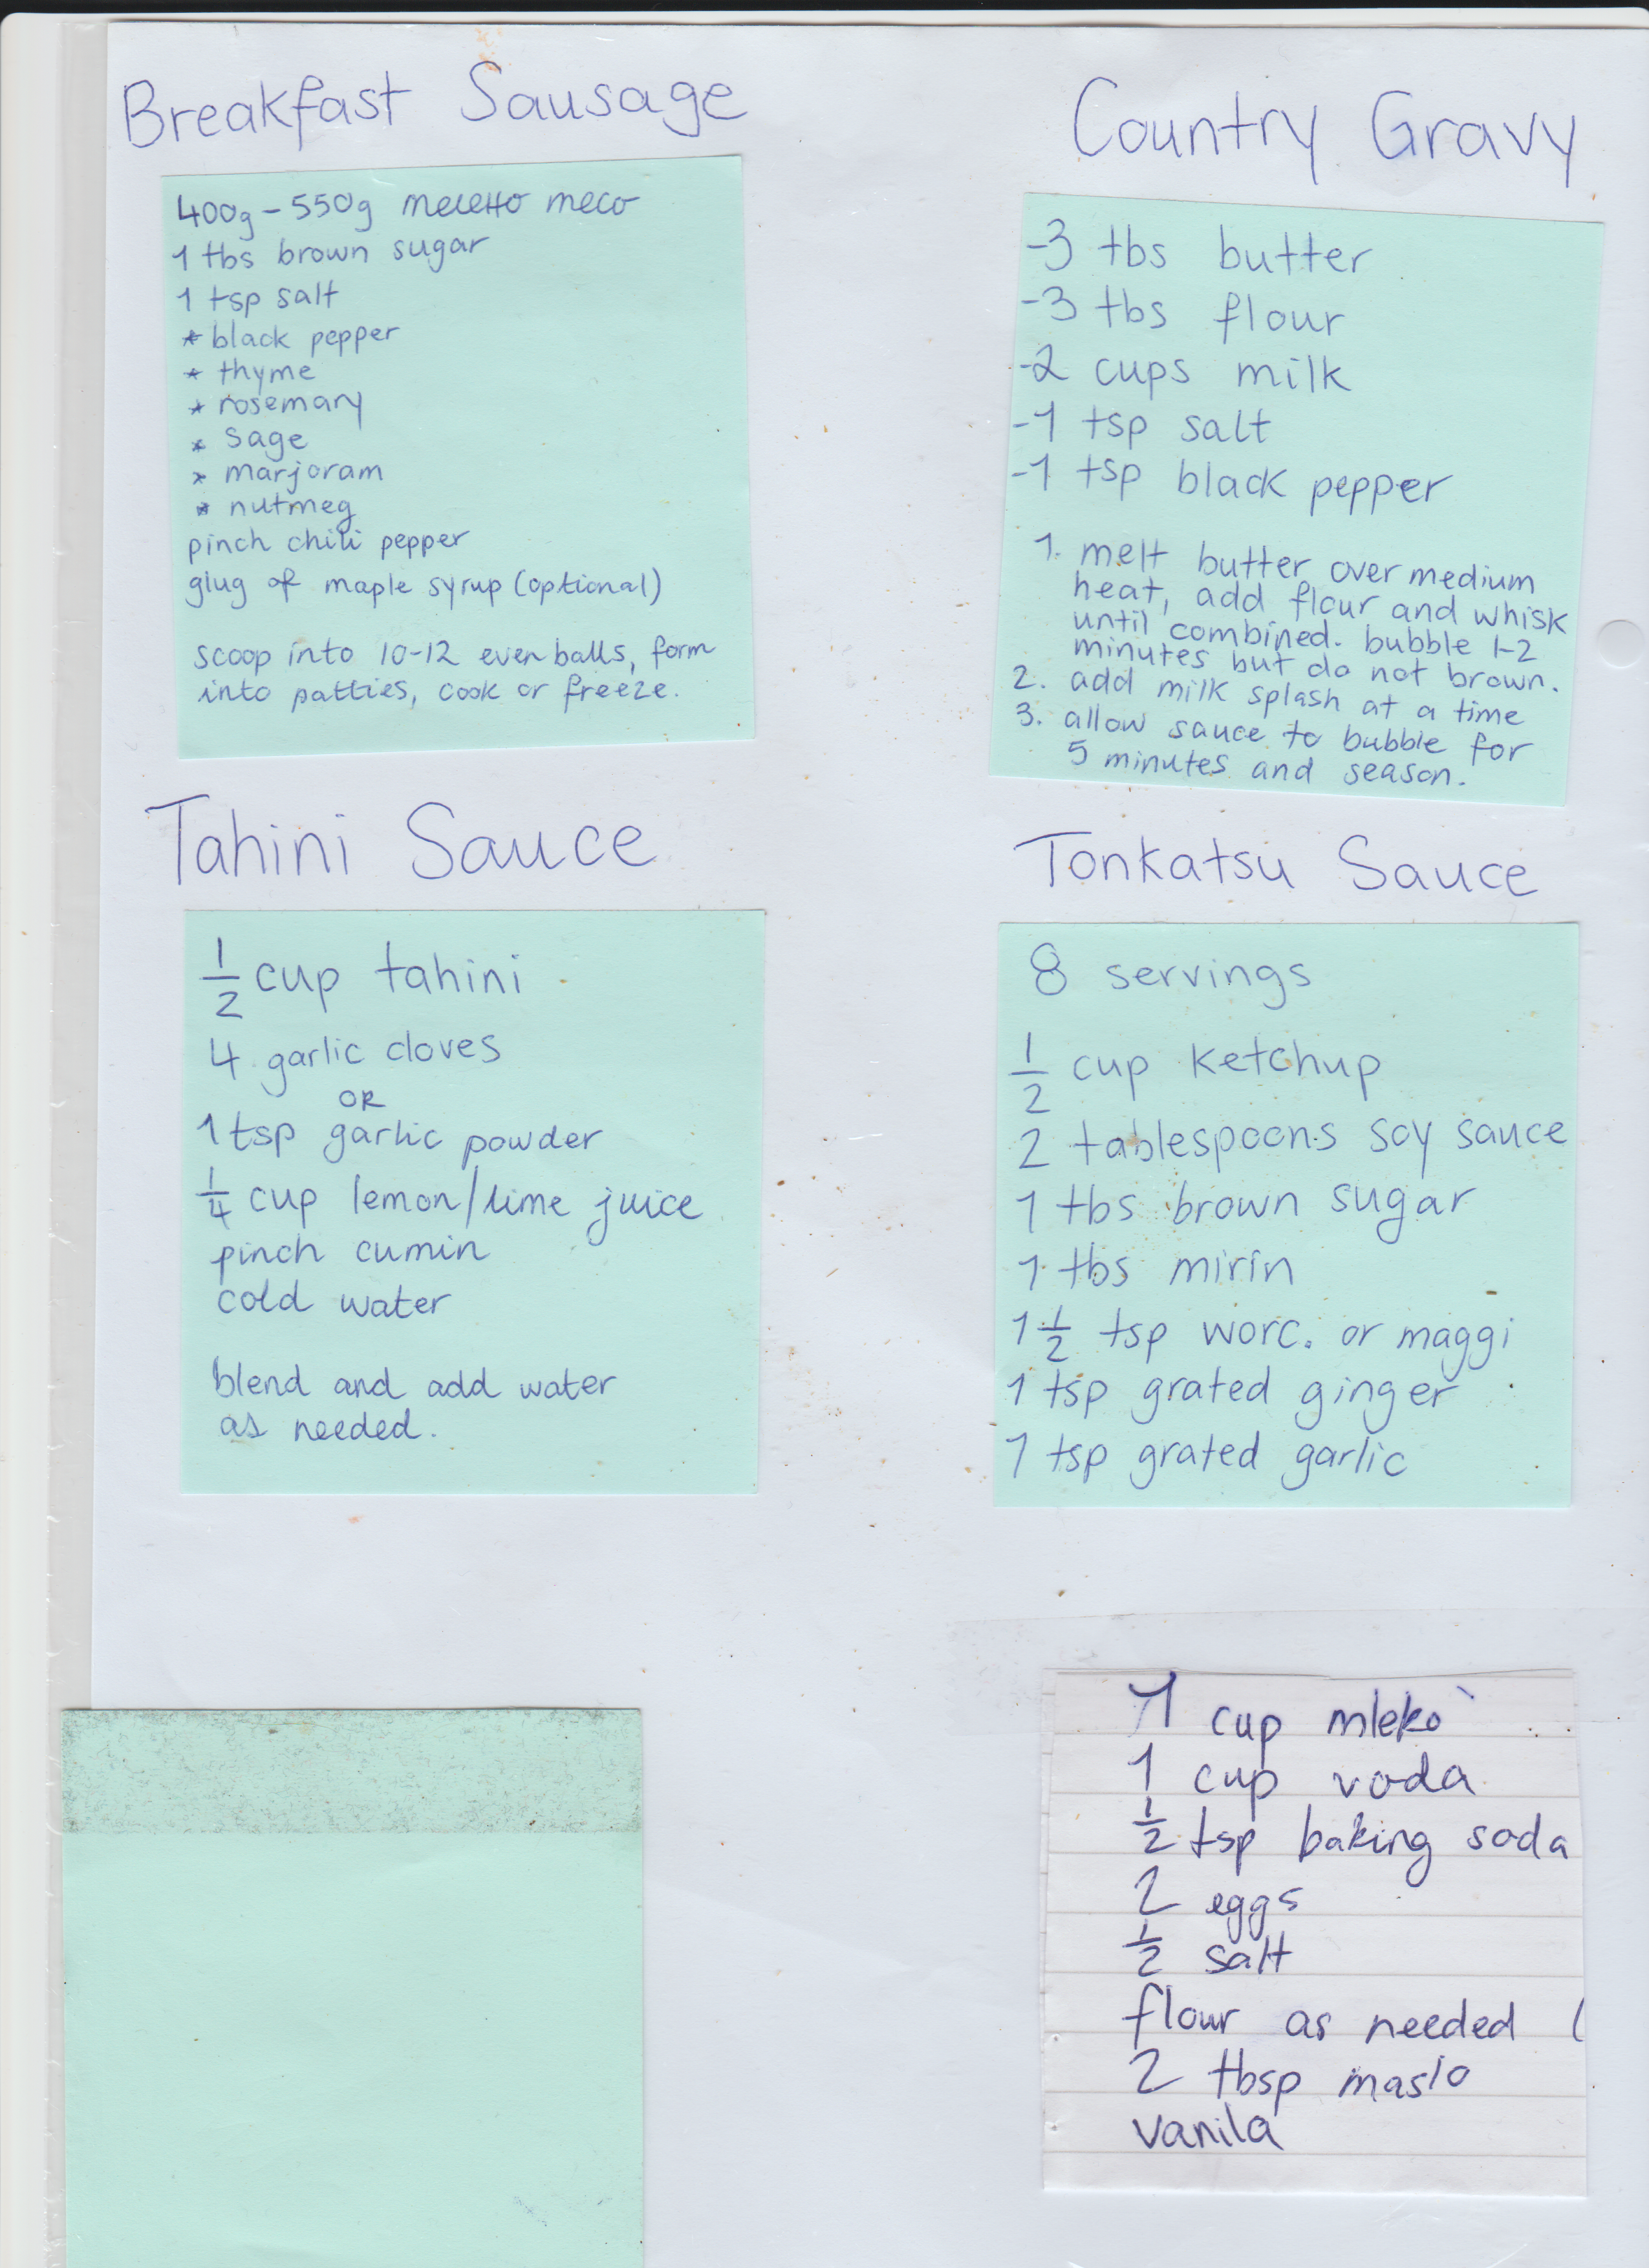 Breakfast Sausage
400g-550g мелено месо
1 tbs brown sugar
1 tsp salt
* black pepper
* thyme
* rosemary
* sage
* marjoram
* nutmeg
pinch chili pepper
glug of maple syrup (optional)
scoop into 10-12 even balls, form
into patties, cook or freeze.
Country Gravy
-3 tbs butter
-3 tbs flour
-2 cups milk
-1 tsp salt
-1 tsp black pepper
1. melt butter over medium
heat, add flour and whisk
until combined. bubble 1-2
minutes but do not brown.
2. add milk splash at a time
3. allow sauce to bubble for
5 minutes and season.
Tahini Sauce
1/2 cup tahini
4 garlic cloves
OR
1 tsp garlic powder
1/4 cup lemon/lime juice
pinch cumin
cold water
blend and add water
as needed.
Tonkatsu Sauce
8 servings
1/2 cup ketchup
2 tablespoons soy sauce
1 tbs brown sugar
1 tbs mirin
1 1/2 tsp worc. or maggi
1 tsp grated ginger
1 tsp grated garlic
1 cup mleko
1 cup voda
1/2 tsp baking soda
2 eggs
1/2 salt
flour as needed (
2 tbsp maslo
vanila